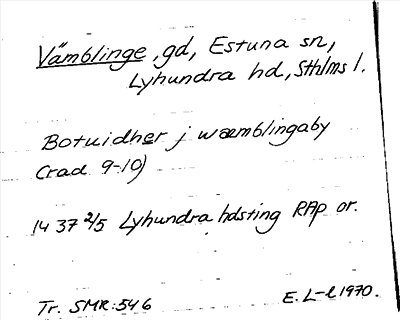 Vämblinge, gd, Estuna sn,
Lyhundra hd, Sthlms l.
Botuidher j wæmblingaby
(rad 9-10)
1437 2/5 Lyhundra hdsting RAp or.
Tr. SMR:546 E. L-l 1970.